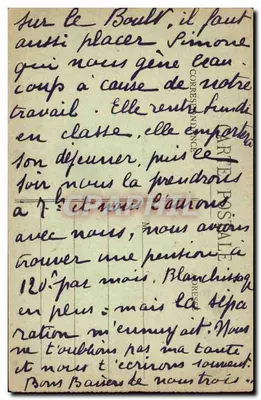 sur le Boult, il faut
aussi placer Simone
qui nous gêne beau-
coup à cause de notre
travail. Elle rentre lundi
en classe, elle emportera
son déjeuner, puis le
soir nous la prendrons
à 7h et nous l'aurons
avec nous, nous avons
trouver une pension à
120f par mois, Blanchissage
en plus, mais la sépa
ration m'ennuyait. Nous
ne t'oublions pas ma tante
et nous t'ecrirons souvent.
Bons Baisers de nous trois.
CARTE POSTALE
CORRESPONDANCE
ADRESSE